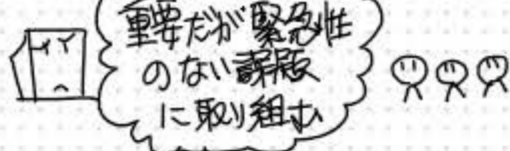 重要だが緊急性
のない課題
に取り組む